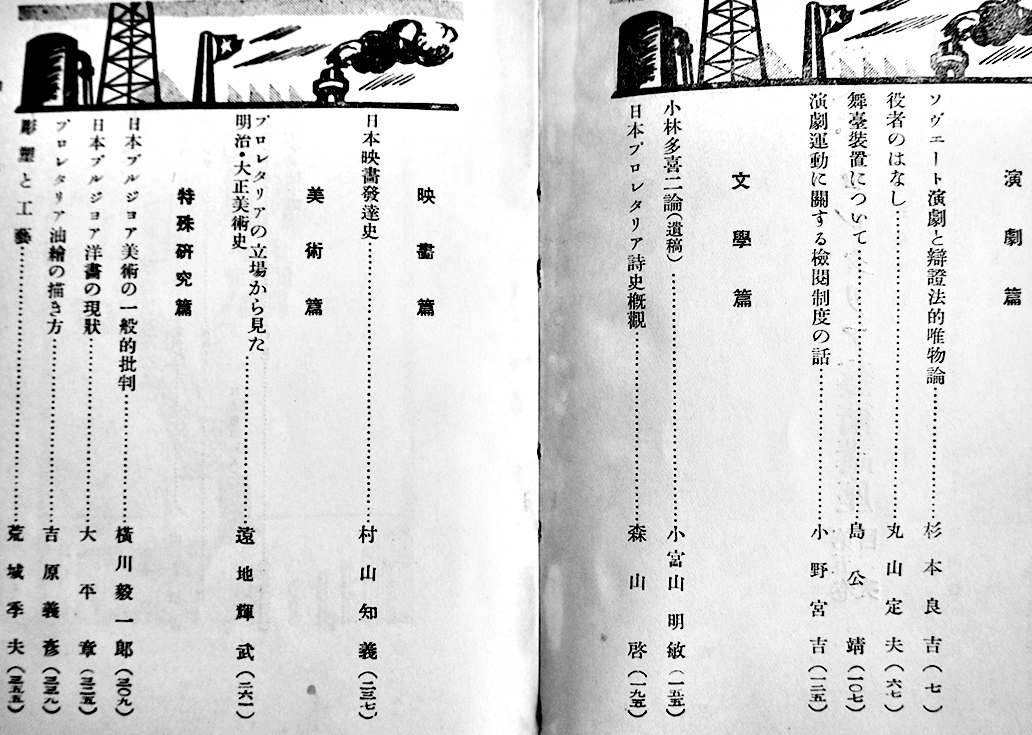 演劇篇
ソヴエート演劇と辯證法的唯物論……杉本良吉(七)
役者のはなし……丸山定夫(六七)
舞臺裝置について……島公靖(一〇七)
演劇運動に關する檢閲制度の話……小野宮吉(一二五)
文學篇
小林多喜二論(遺稿)……小宮山明敏(一五五)
日本プロレタリア詩史概觀……森山啓(一九五)
映畫篇
日本映畫發達史……村山知義(二三七)
美術篇
プロレタリアの立場から見た
明治・大正美術史……遠地輝武(二六一)
特殊研究篇
日本ブルジヨア美術の一般的批判……橫川毅一郎(三〇九)
日本ブルジヨア洋畫の現狀……大平章(三二五)
プロレタリア油繪の描き方……吉原義彥(三三九)
彫塑と工藝……荒城季夫(三五五)